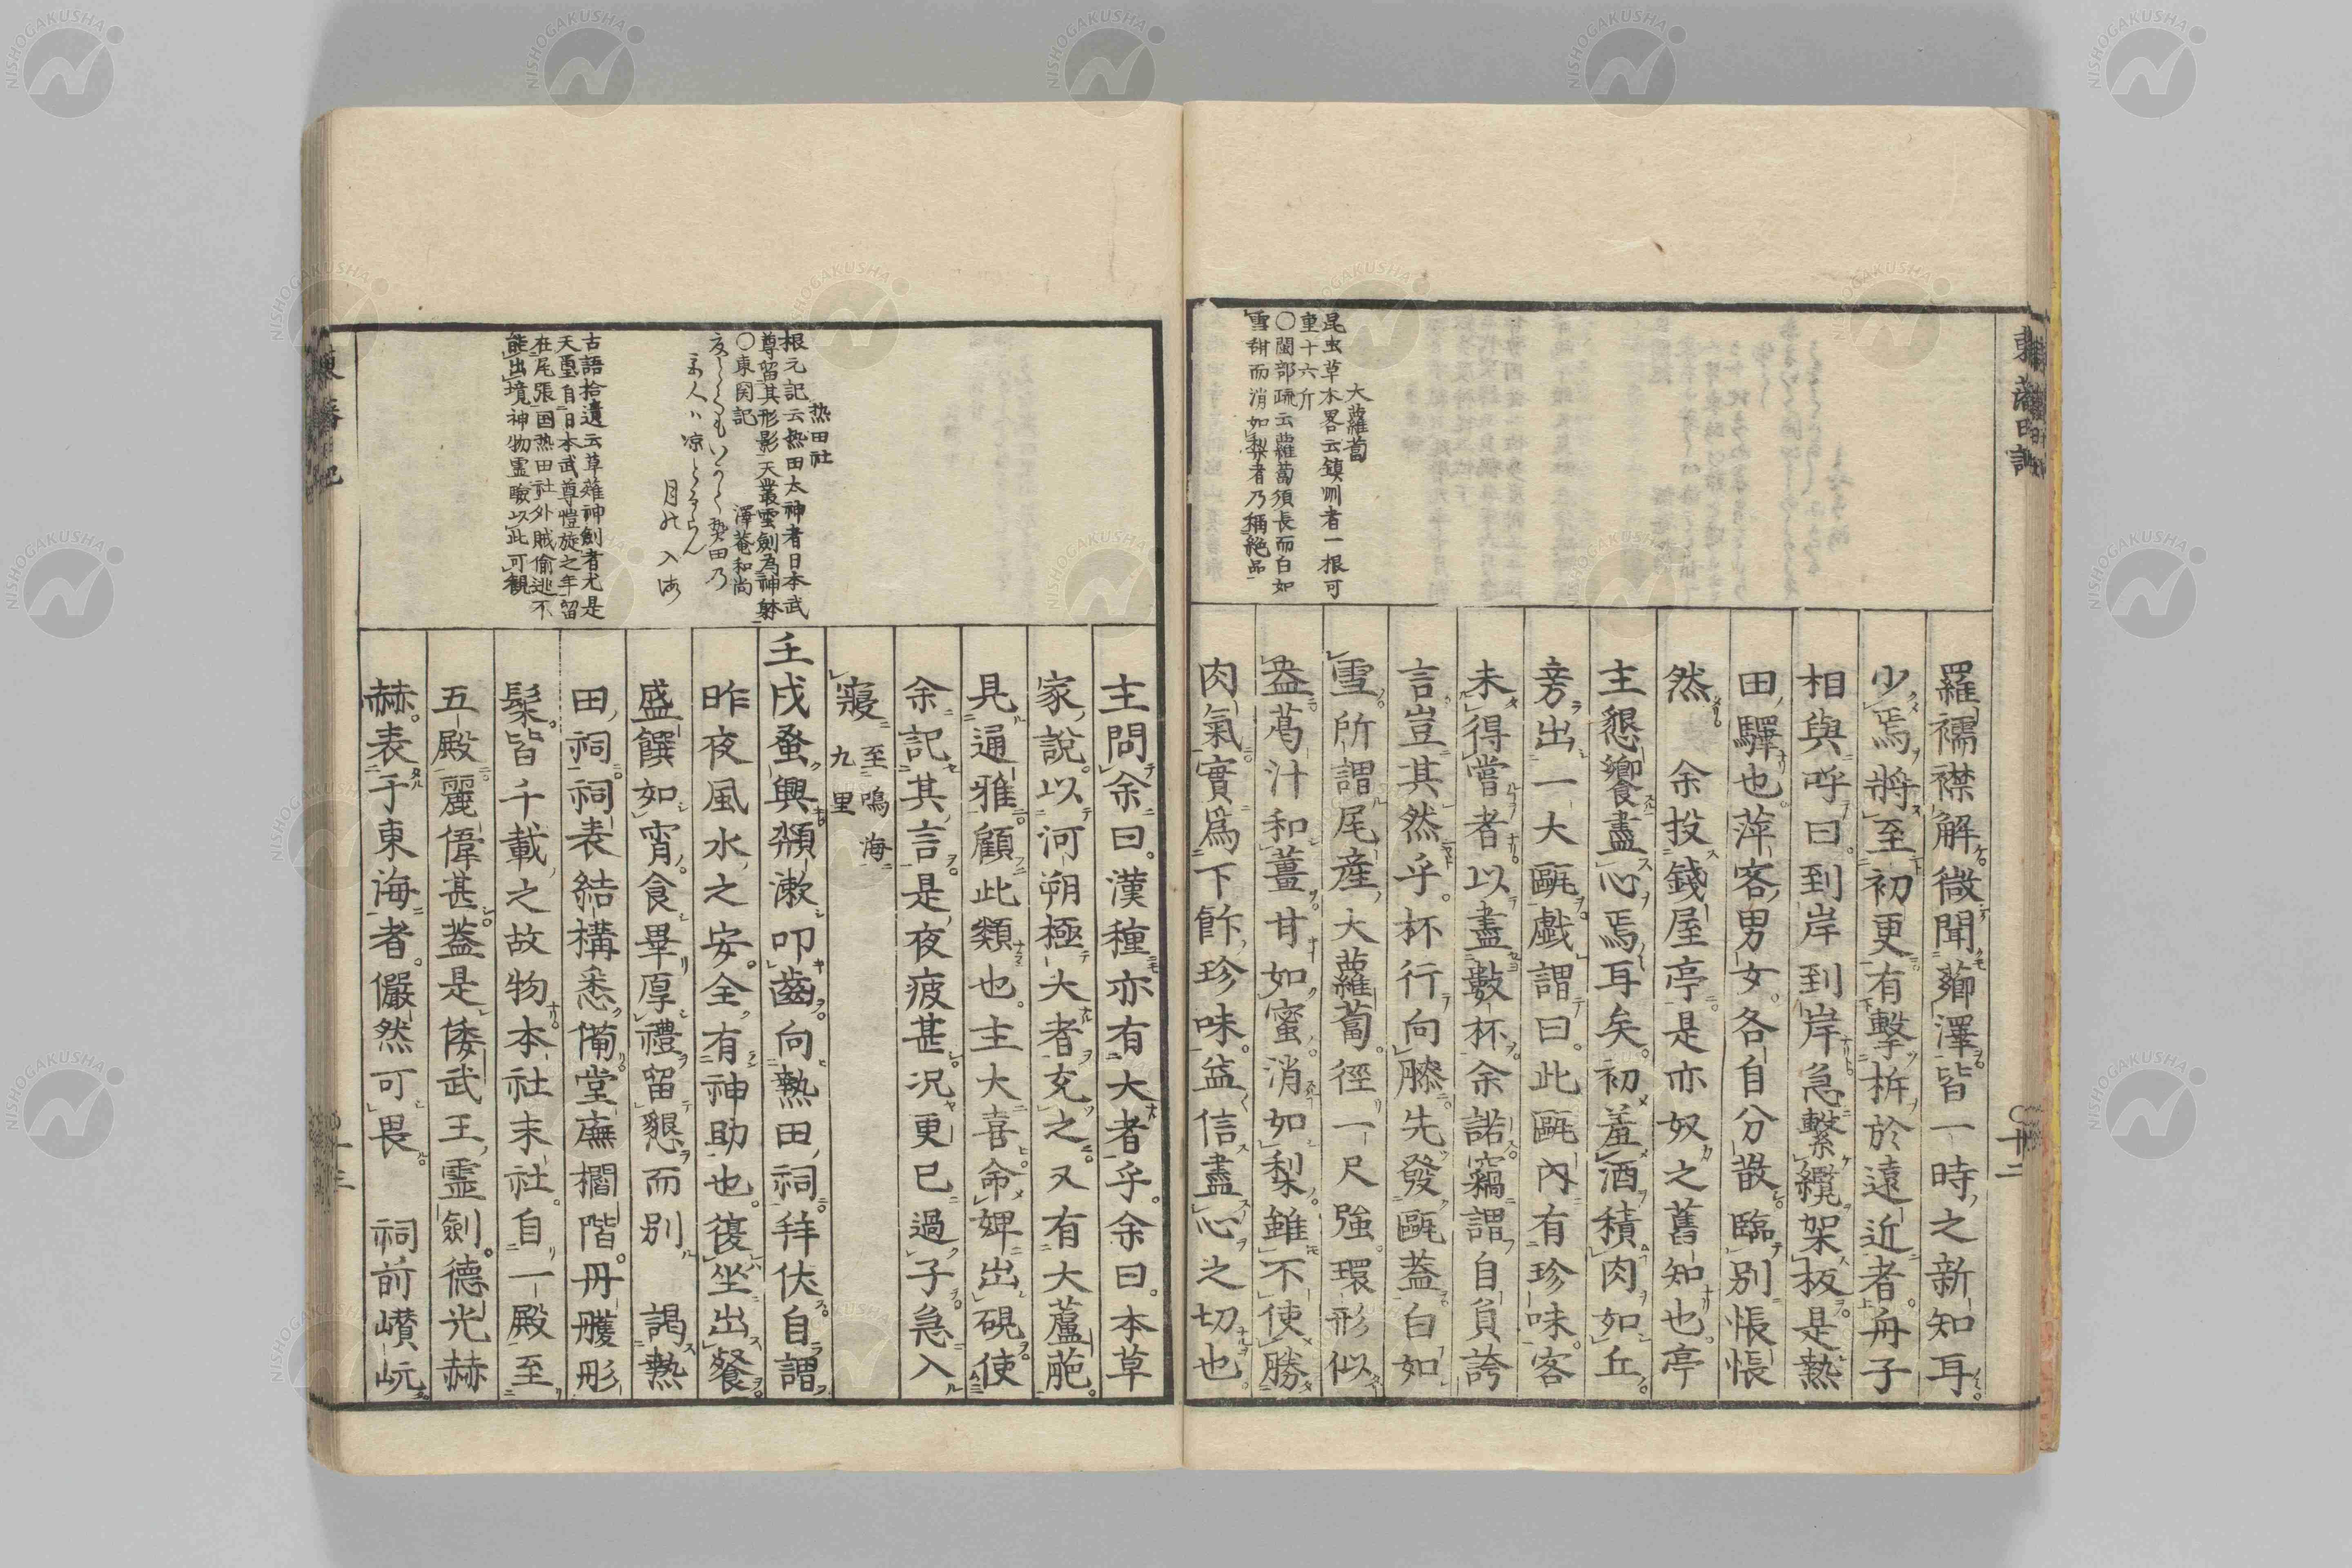 大蘿蔔
昆虫草木畧云鎮州者一根可
重十六斤
〇閩部疏云蘿蔔須長而白如
雪甜而消如梨者乃稱絶品
羅襦襟解微聞薌澤皆一時之新知耳
少焉將至初更有擊柝於遠近者舟子
相與呼曰到岸到岸急繋纜架板是熱
田驛也萍客男女各自分散臨別悵悵
然　余投錢屋亭是亦奴之舊知也亭
主懇饗盡心焉耳矣初羞酒積肉如丘
旁出一大甌戯謂曰此甌內有珍味客
未得嘗者以盡數杯余諾竊謂自負誇
言豈其然乎杯行向滕先發甌蓋白如
雪所謂尾産大蘿蔔徑一尺強環形似
盎蔦汁和薑甘如蜜消如梨雖不使勝
肉氣實爲下飵珍味益信盡心之切也
熱田社
根元記云熱田太神者日本武
尊留其形影天叢雲劍為神躰
〇東関記　澤菴和尚
月の入海
古語拾遺云草薙神劍者尤是
天璽自日本武尊愷旋之年留
在尾張国熱田社外賊偷逃不
能出境神物霊驗以此可観
主問余曰漢種亦有大者乎余曰本草
家說以河朔極大者充之又有大蘆萉
見通雅顧此類也主大喜命婢出硯使
余記其言是夜疲甚况更已過子急入
寢　至鳴海九里
壬戌蚤興頮漱叩齒向熱田祠拜伏自謂
昨夜風水之安全有神助也復坐出餐
盛饌如宵食畢厚禮留懇而別　謁熱
田祠祠表結構悉備堂廡櫊階丹雘彤
髹皆千載之故物本社末社自一殿至
五殿麗偉甚蓋是倭武王霊劍德光赫
赫表于東海者儼然可畏　祠前巑岏